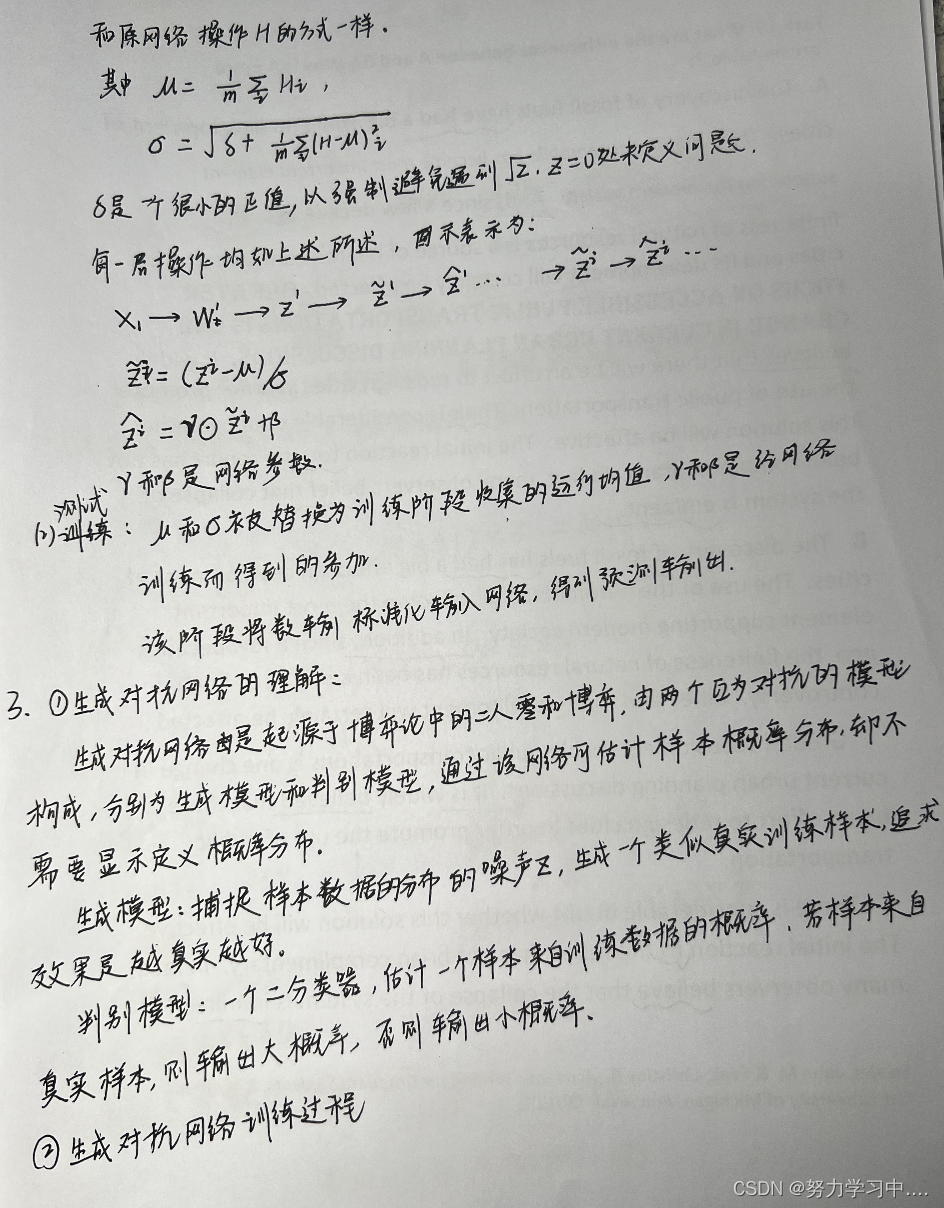 和原网络操作H的方式一样.
其中 μ = 1/m Σ_i H_i ,
σ = √(δ + 1/m Σ_i (H-μ)_i^2)
δ是一个很小的正值, 以强制避免遇到√z, z=0处未定义问题.
每一层操作均如上述所述, 图示表示为:
X_1 → W_t^1 → z^1 → z̃^1 → ẑ^1 ... → z̃^i → ẑ^i ...
z̃^i = (z^i-μ)/σ
ẑ^i = γ⊙z̃^i+β
γ和β是网络参数.
测试
(2) 训练: μ和σ被替换为训练阶段收集的运行均值, γ和β是经网络
训练而得到的参加.
该阶段将数输 标准化输入网络, 得到预测输出.
3. ①生成对抗网络的理解:
生成对抗网络由是起源于博弈论中的二人零和博弈, 由两个互为对抗的模型
构成, 分别为生成模型和判别模型, 通过该网络可估计样本概率分布, 却不
需要显示定义概率分布.
生成模型: 捕捉样本数据的分布的噪声z, 生成一个类似真实训练样本, 追求
效果是越真实越好.
判别模型: 一个二分类器, 估计一个样本来自训练数据的概率. 若样本来自
真实样本, 则输出大概率, 否则输出小概率.
②生成对抗网络训练过程
CSDN @努力学习中....